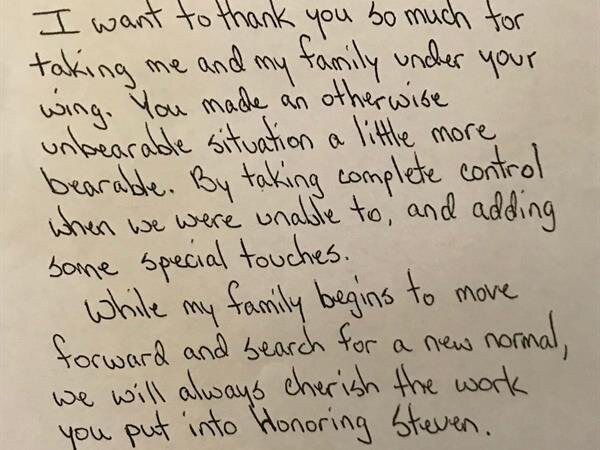 I want to thank you so much for
taking me and my family under your
wing. You made an otherwise
unbearable situation a little more
bearable. By taking complete control
when we were unable to, and adding
some special touches.
While my family begins to move
forward and search for a new normal,
we will always cherish the work
you put into Honoring Steven.